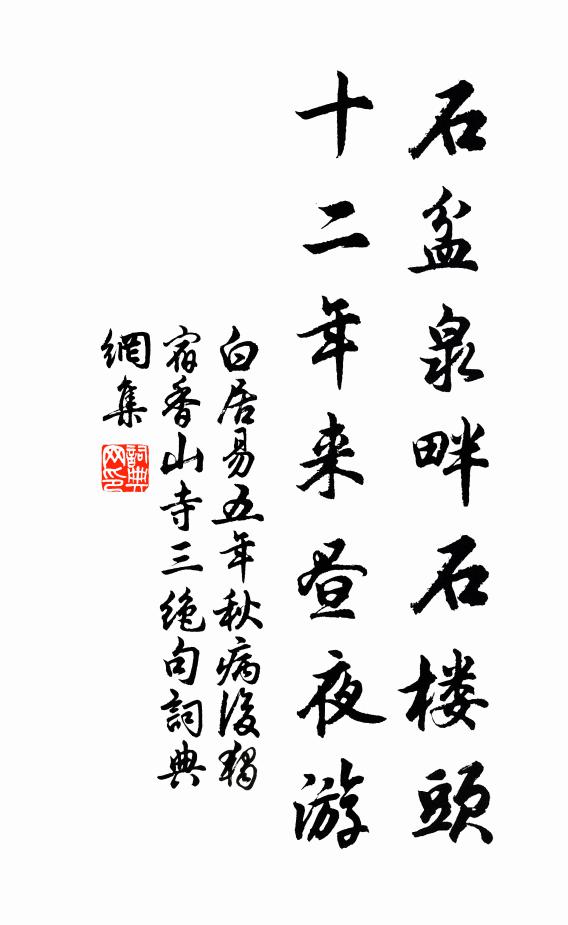 石盆泉畔石楼頭
十二年来昼夜游
白居易五年秋病後獨
宿香山寺三绝句詞典
網集
詞典
网印